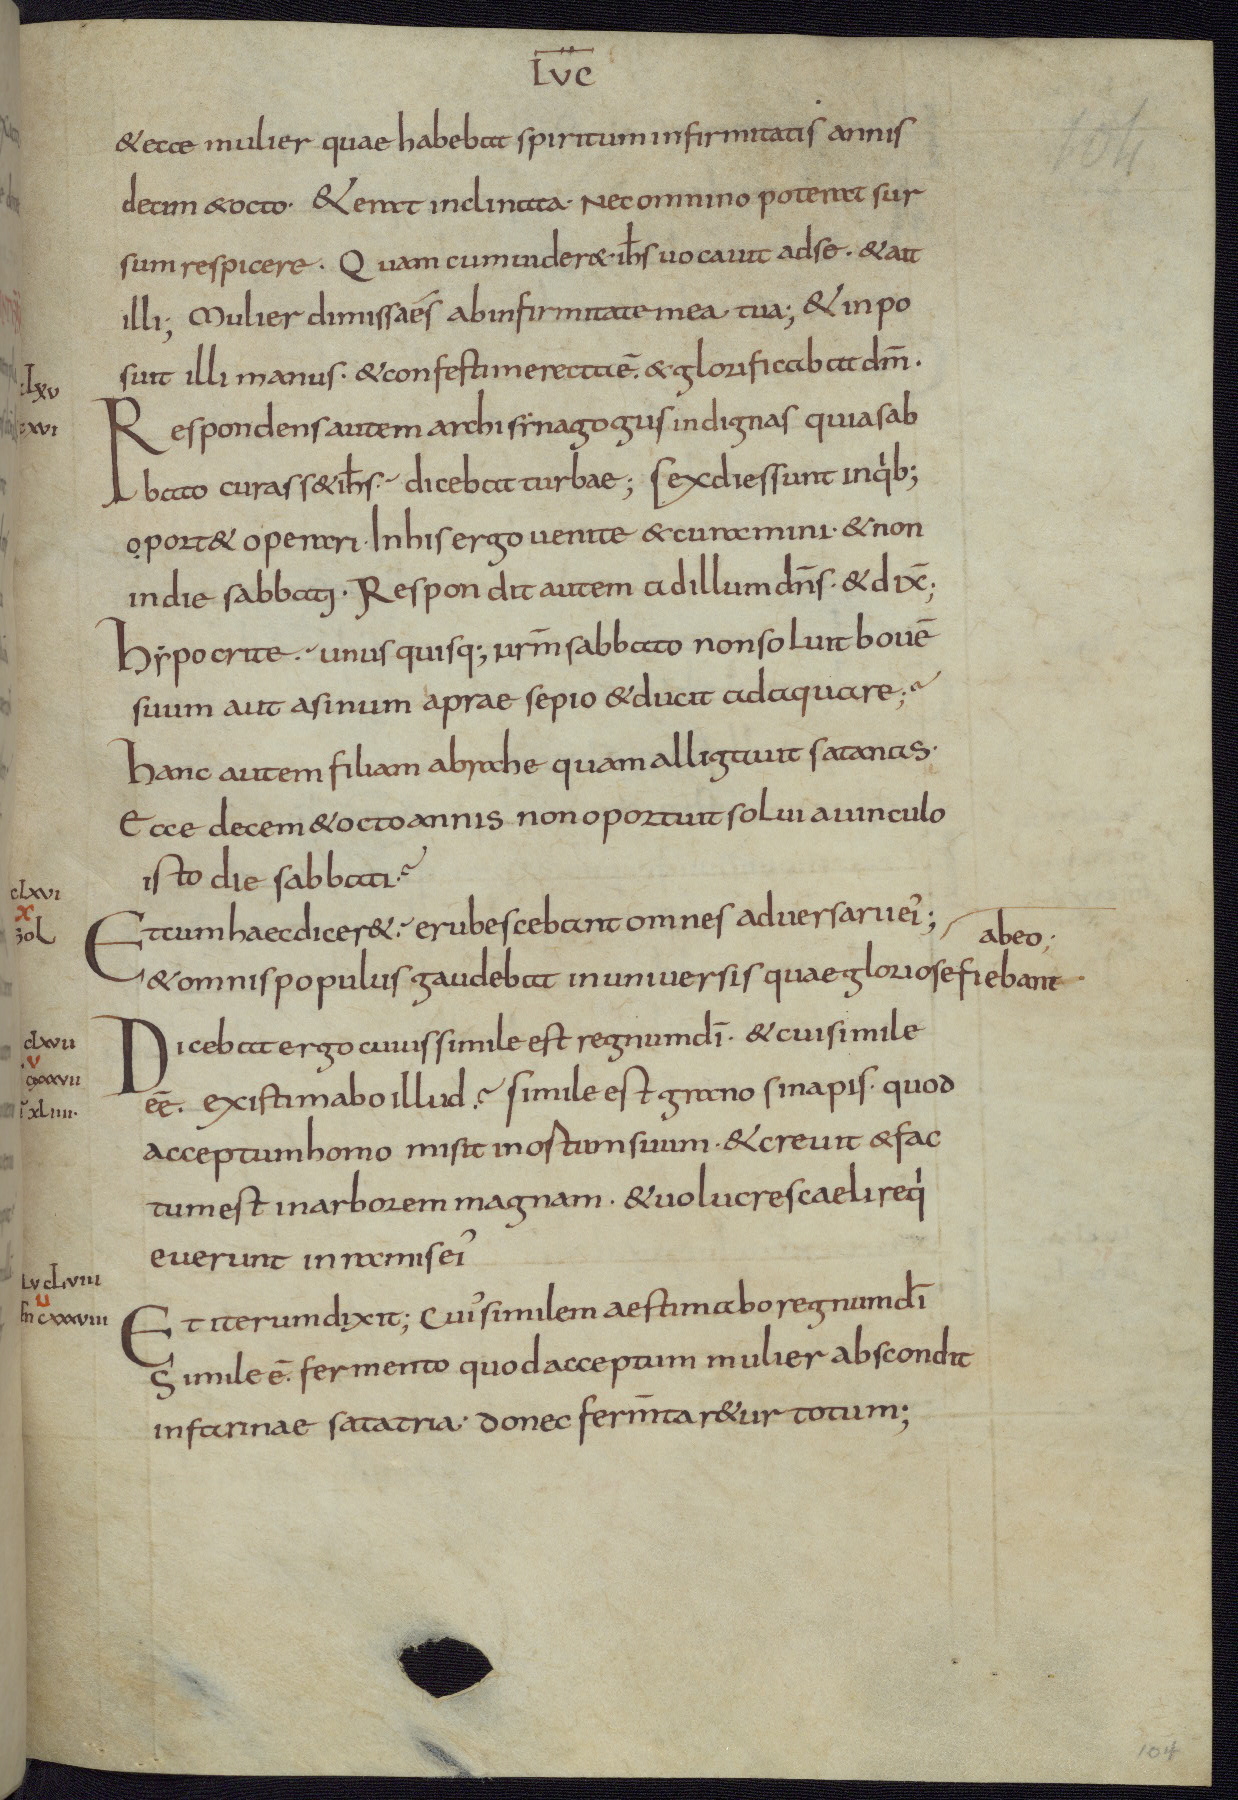 LVC
104
& ecce mulier quae habebat spiritum infirmitatis annis
decim & octo· & erat inclinata· Nec omnino poterat sur
sum respicere· Quam cum uider& ih̅s uocauit ad se· & ait
illi; Mulier dimissa és ab infirmitate mea tua; & inpo
suit illi manus· & confestim erecta ē· & glorificabat dm̅·
clxv
xvi
Respondens autem archisynagogus indignas quia sab
bato curass& ih̅s· dicebat turbae; Sex dies sunt in qib;
oport& operari· In his ergo uenite & curamini· & non
in die sabbati· Respondit autem ad illum dn̅s· & dix̅;
hypocrite· unusquisq; urm̅ sabbato non soluit bouē
suum aut asinum a praesepio & ducit adaquare;
hanc autem filiam abrahe quam alligauit satanas·
Ecce decem & octo annis non oportuit solui a uinculo
isto die sabbati·
clxvi
x
sol
Et cum haec dicer&· erubescebant omnes aduersarii ei;
& omnis populus gaudebat in uniuersis quae gloriose fiebant
abeo;
clxvii
v
cxxxvii
xliiii·
Dicebat ergo cuius simile est regnum di̅· & cui simile
eē· existimabo illud· Simile est grano sinapis· quod
acceptum homo misit in ostum suum· & creuit & fac
tum est in arborem magnam· & uolucres caeli reqi
euerunt in ramis ei
Lv clviii
u
m cxxxviii
Et iterum dixit; Cui similem aestimabo regnum di̅
Simile ē· fermento quod acceptum mulier abscondit
in farinae sata tria· donec ferm̅tar&ur totum;
104